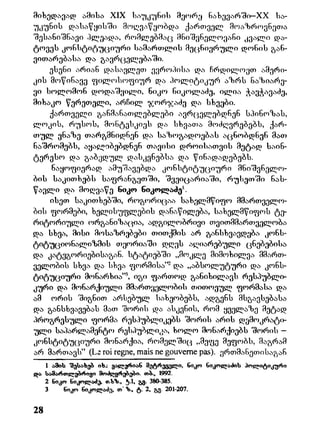 მიხედავად ამისა XIX საუკუნის მეორე ნახევარში—XX სა-
უკუნის დასაწყისში მოღვაწეობდა ქართველ მოაზროვნეთა
შესანიშნავი პლეადა, რომლებმაც მნიშვნელოვანი კვალი და-
ტოვეს კონსტიტუციური სამართლის მეცნიერული დონის გან-
ვითარებასა და გავრცელებაში.
ესენი არიან დასავლეთ ევროპისა და ჩრდილოეთ ამერი-
კის მოწინავე ფილოსოფიურ და პოლიტიკურ აზრს ნაზიარე-
ვი სოლომონ დოდაშვილი, ნიკო ნიკოლაძე, ილია ჭავჭავაძე,
მიხაკო წერეთელი, არჩილ ჯორჯაძე და სხვები.
ქართველი განმანათლებლები ავრცელებდნენ სპინოზას,
ლოკის, რუსოს, მონტესკიეს და სხვათა მოძღვრებებს, ქარ-
თულ ენაზე თარგმნიდნენ და საზოგადოებას აცნობდნენ მათ
ნაშრომებს, აყალიბებდნენ თავისი დროისათვის მეტად საინ-
ტერესო და გაბედულ დასკვნებსა და წინადადებებს.
ნაყოფიერად ამუშავებდა კონსტიტუციური მნიშვნელო-
ბის საკითხებს საფრანგეთში, შვეიცარიაში, რუსეთში ნას-
წავლი და მოღვაწე ნიკო ნიკოლაძე¹.
ისეთ საკითხებში, როგორიცაა სახელმწიფო მმართველო-
ბის ფორმები, ხელისუფლების დანაწილება, სახელმწიფოს ტე-
რიტორიული ორგანიზაცია, ადგილობრივი თვითმმართველობა
და სხვა, მისი მოსაზრებები თითქმის არ განსხვავდება კონს-
ტიტუციონალიზმის თეორიაში დღეს აღიარებული ცნებებისა
და კატეგორიებისაგან. სტატიებში „მოკლე მიმოხილვა მმართ-
ველობის სხვა და სხვა ფორმისა"² და „აბსოლუტური და კონს-
ტიტუციური მონარქია"³, იგი ფართოდ განიხილავს რესპუბლი-
კური და მონარქიული მმართველობის თითოეულ ფორმასა და
ამ ორის შიგნით არსებულ სახეობებს, ადგენს მსგავსებასა
და განსხვავებას მათ შორის და ასკვნის, რომ ყველაზე მეტად
პროგრესული ფორმა რესპუბლიკებს შორის არის დემოკრატი-
ული საპარლამენტო რესპუბლიკა, ხოლო მონარქიებს შორის –
კონსტიტუციური მონარქია, რომელშიც „მეფე მეფობს, მაგრამ
არ მართავს" (Le roi regne, mais ne gouverne pas). ერთმანეთისაგან
1 ამის შესახებ იხ.: ვალერიან მეტრეველი, ნიკო ნიკოლაძის პოლიტიკური
და სამართლებრივი მოძღვრებები. თბ., 1997.
2 ნიკო ნიკოლაძე, თხზ., ტ.1, გვ. 380-385.
3 ნიკო ნიკოლაძე, თხზ., ტ. 2, გვ. 201-207.
28